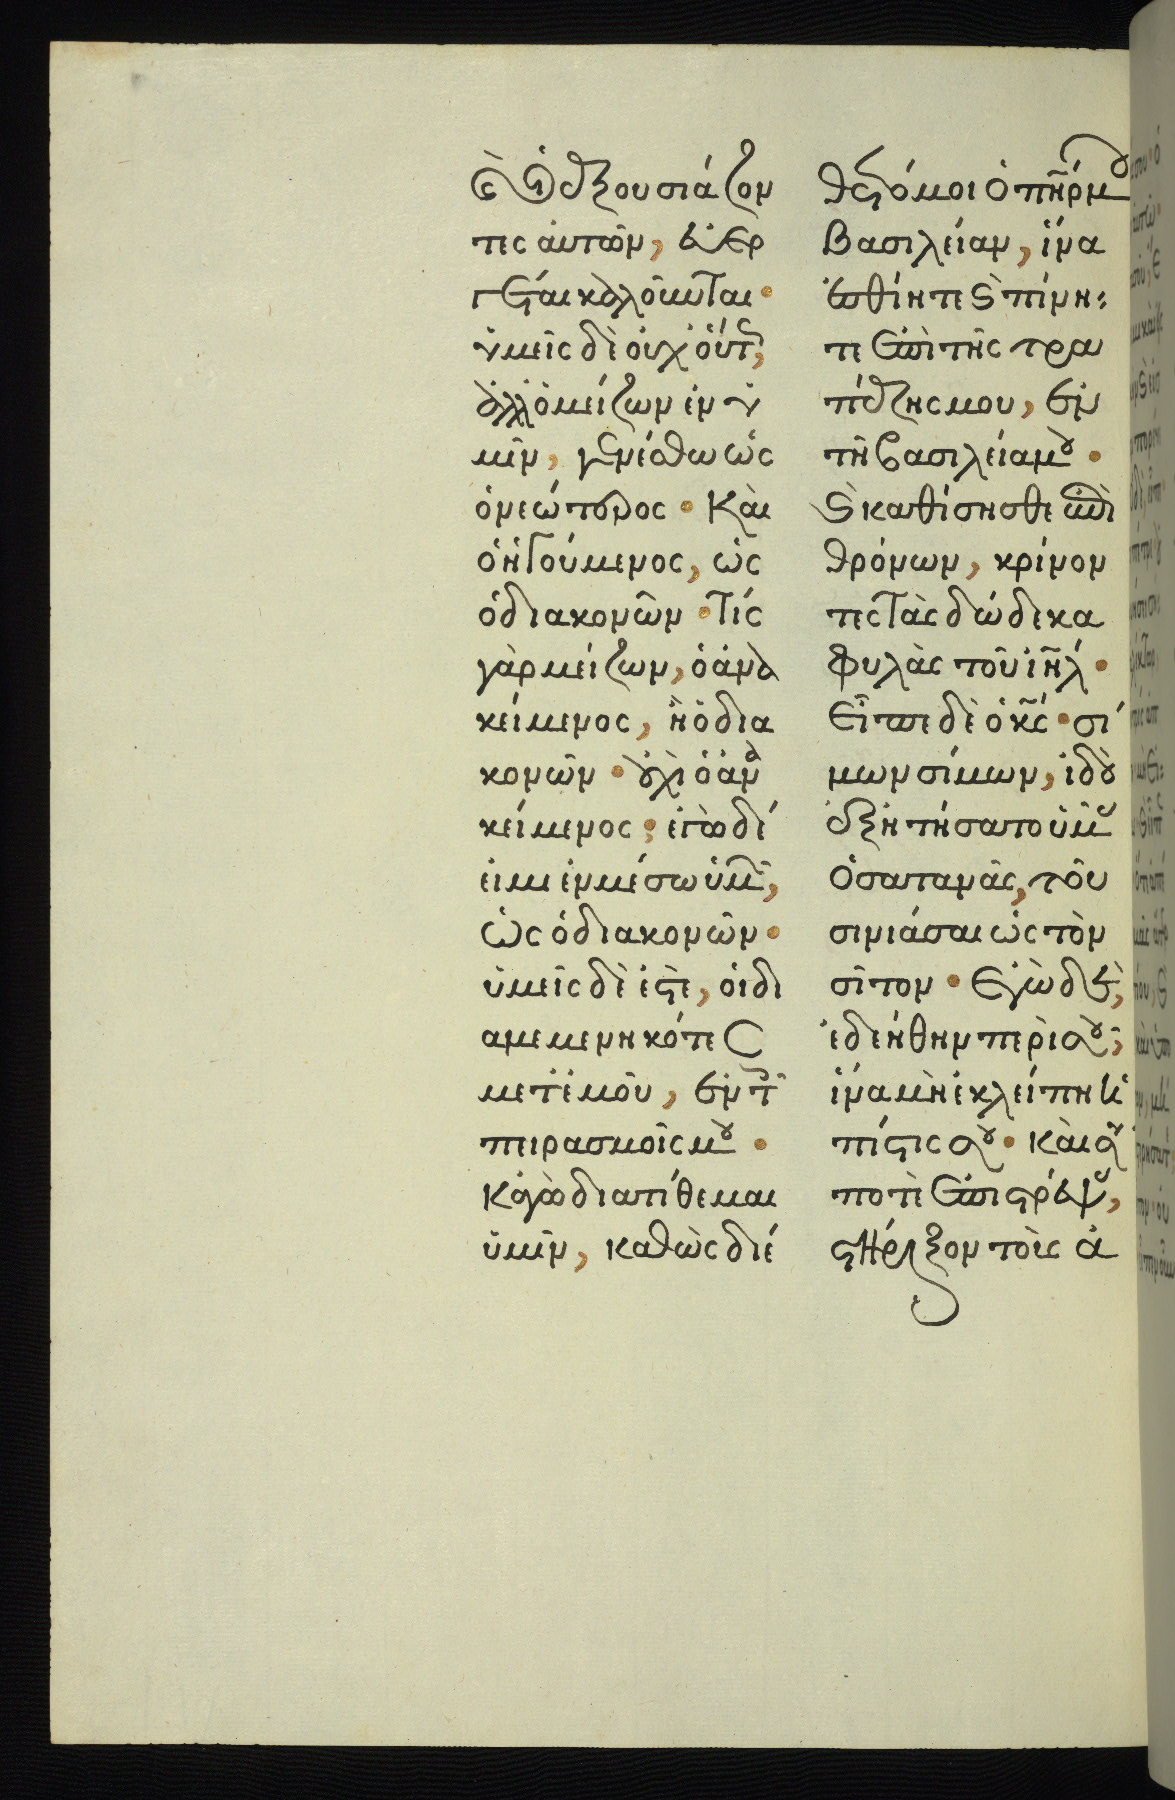 ϗ οἱ ἐξουσιάζον
τες αὐτῶν, εὐερ
γέται καλοῦνται·
ὑμεῖς δὲ οὐχ οὕτως,
ἀλλ ὁ μείζων ἐν ὑ
μῖν, γενέσθω ὡς
ὁ νεώτερος· Καὶ
ὁ ἡγούμενος, ὡς
ὁ διακονῶν· Τίς
γὰρ μείζων, ὁ ἀνα
κείμενος, ἢ ὁ δια
κονῶν· οὐχὶ ὁ ἀνα
κείμενος; ἐγὼ δέ
εἰμι ἐν μέσω ὑμῶν,
ὡς ὁ διακονῶν·
ὑμεῖς δὲ ἐστὲ, οἱ δι
αμεμενηκότες
μετ ἐμοῦ, ἐν τοῖς
πειρασμοῖς μου·
Κἀγὼ διατίθεμαι
ὑμῖν, καθὼς διέ
θετό μοι ὁ πηρ μου
Βασιλείαν, ἵνα
ἐσθίητε ϗ πίνη
τε ἐπὶ τῆς τρα
πέζης μου, ἐν
τῆ βασιλεία μου·
ϗ καθίσησθε ἐπὶ
θρόνων, κρίνον
τες τὰς δώδεκα
φυλὰς τοῦ ιηλ·
Εἶπε δὲ ὁ κς· σί
μων σίμων, ἰδοὺ
ἐξητήσατο ὑμᾶς
ὁ σατανᾶς, τοῦ
σινιάσαι ὡς τὸν
σῖτον· Ἐγὼ δὲ,
ἐδεήθην περὶ σοῦ,
ἵνα μὴ ἐκλείπη ἡ
πίστις σου· καὶ σύ
ποτὲ ἐπιστρέψας,
στήριξον τοὺς ἀ